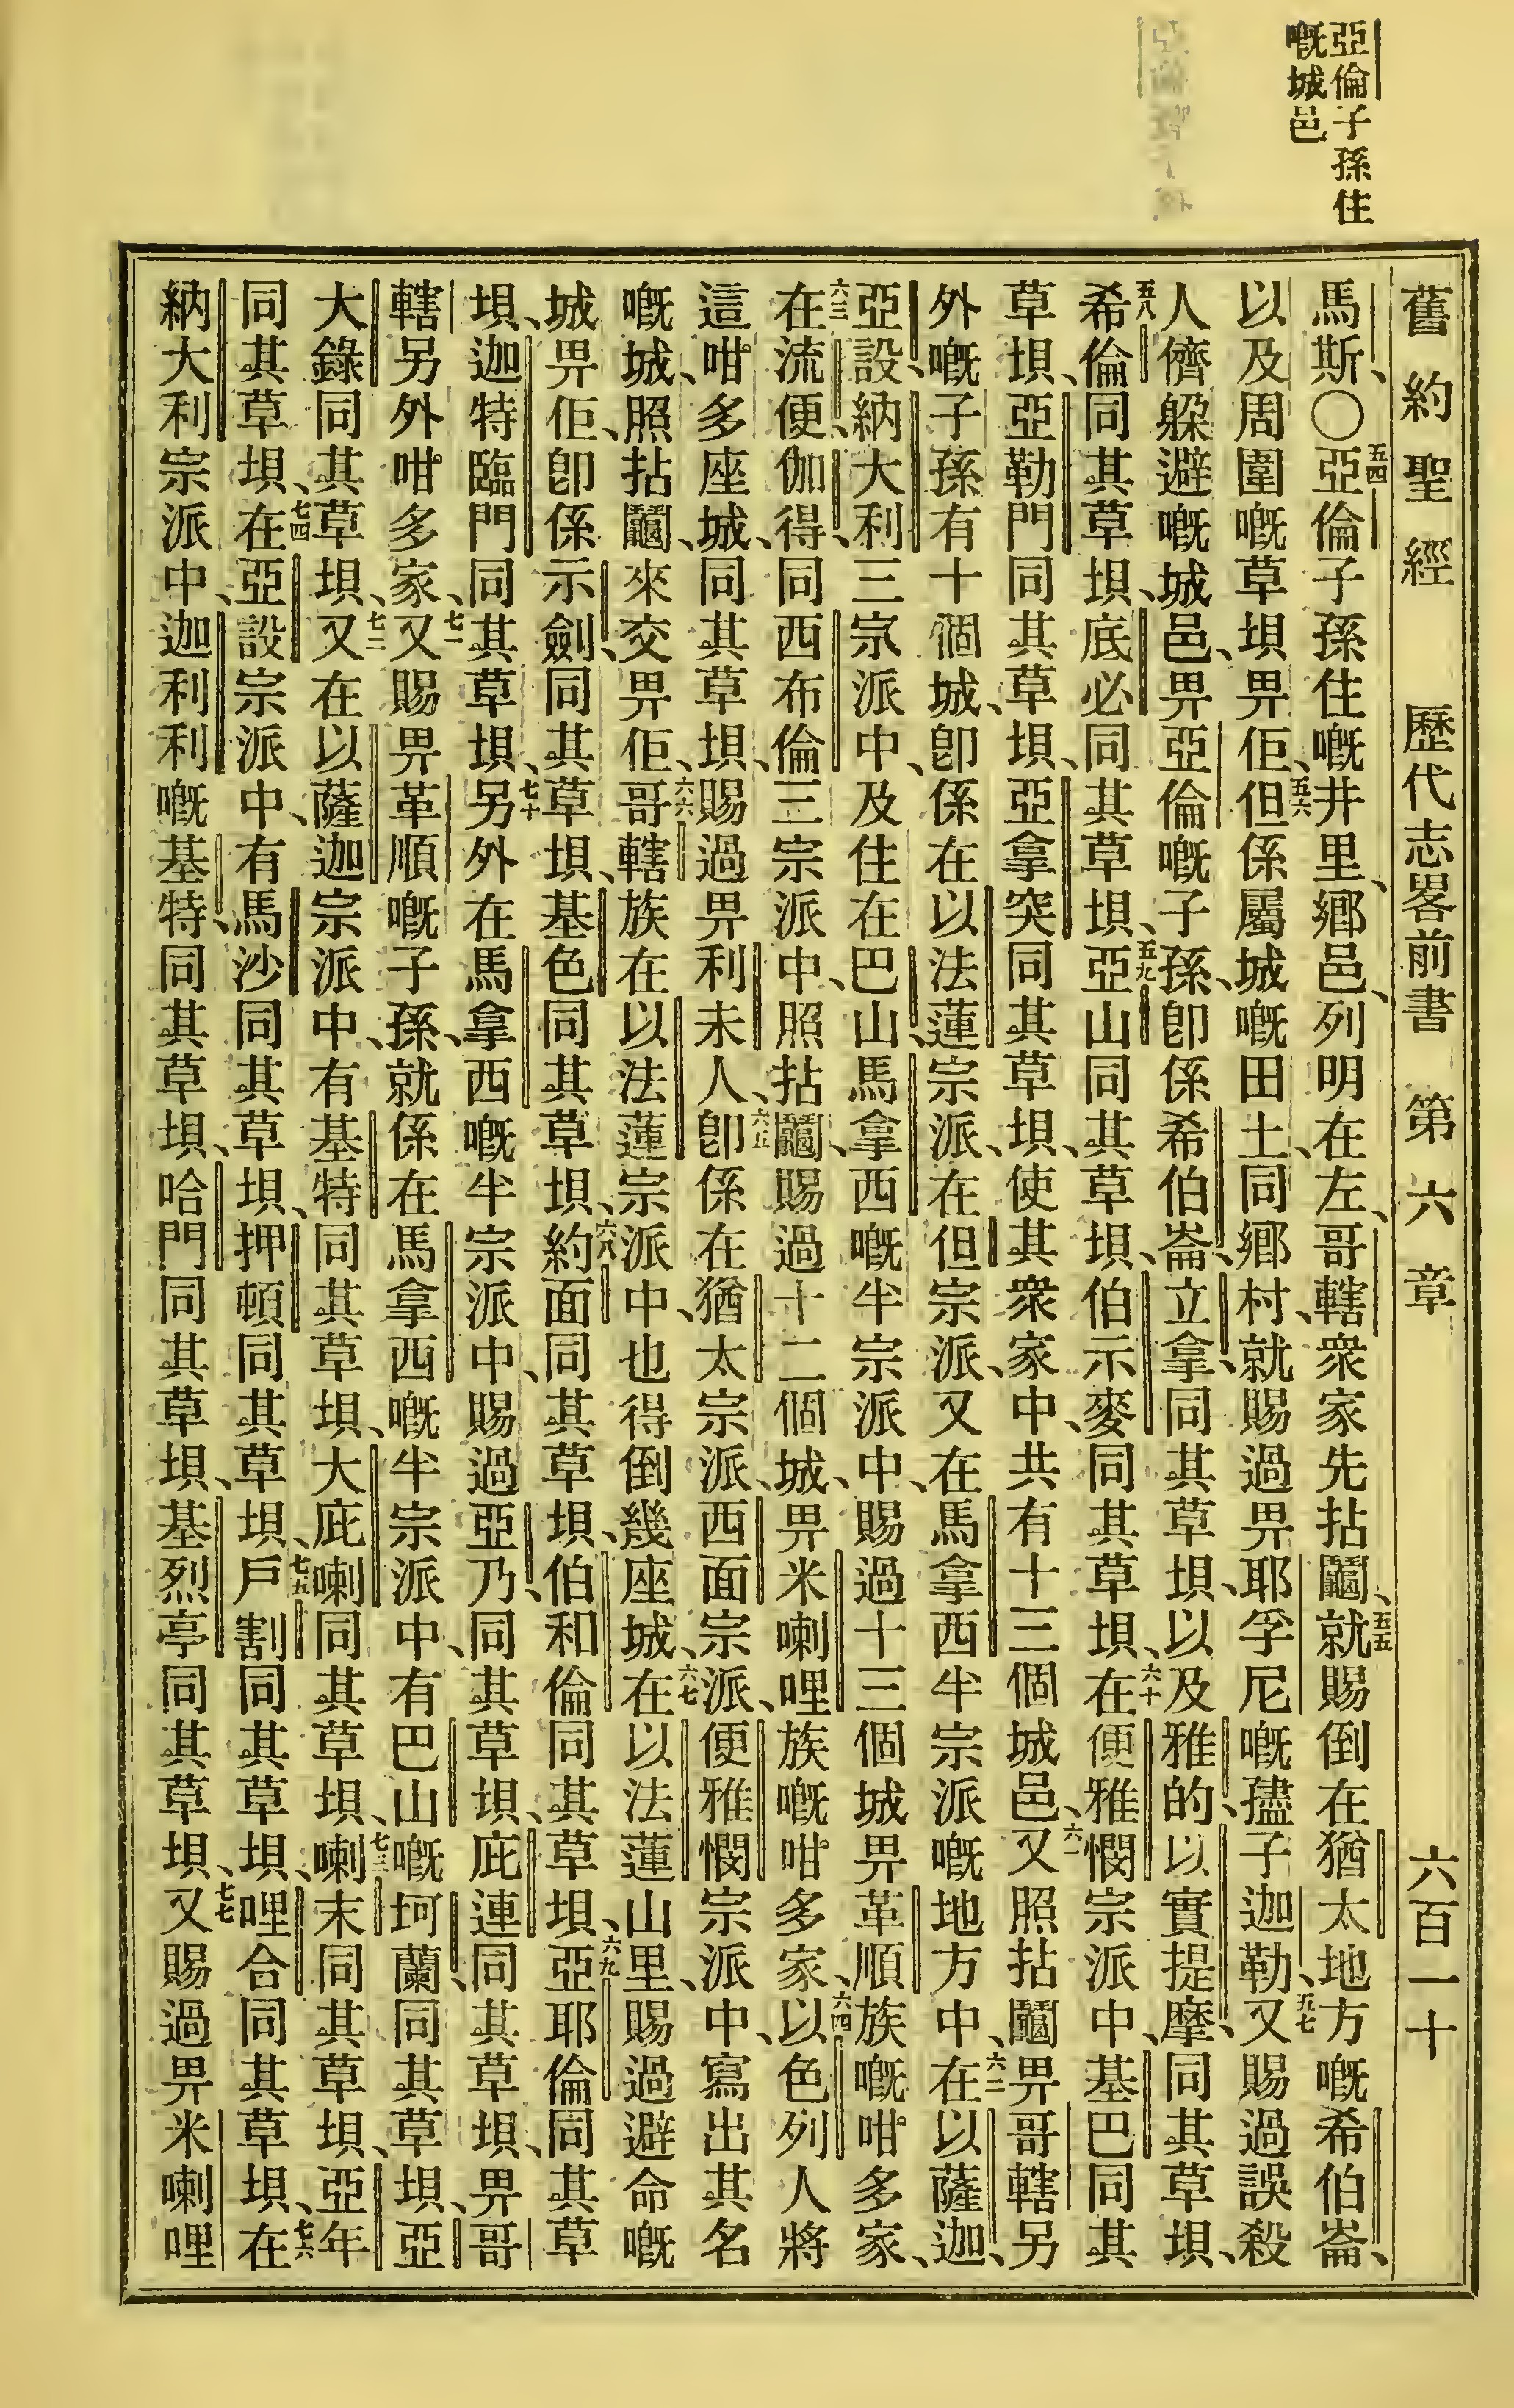 亞倫子孫住
嘅城邑
舊約聖經 歷代志畧前書 第六章 六百一十
馬斯、〇五四亞倫子孫住嘅井里、鄉邑、列明在左、哥轄衆家先拈鬮、五五就賜倒在猶太地方嘅希伯崙、
以及周圍嘅草垻畀佢、五六但係屬城嘅田土、同鄉村、就賜過畀耶孚尼嘅孻子迦勒、五七又賜過誤殺
人儕躱避嘅城邑、畀亞倫嘅子孫、卽係希伯崙、立拿、同其草垻、以及雅的、以實提摩、同其草垻、
五八希倫同其草垻、底必同其草垻、五九亞山同其草垻、伯示麥同其草垻、六十在便雅憫宗派中、基巴同其
草垻、亞勒門同其草垻、亞拿突同其草垻、使其衆家中、共有十三個城邑、六一又照拈鬮畀哥轄另
外嘅子孫有十個城、卽係在以法蓮宗派、在但宗派、又在馬拿西半宗派嘅地方中、六二在以薩迦、
亞設、納大利三宗派中、及住在巴山、馬拿西嘅半宗派中、賜過十三個城畀革順族嘅咁多家、
六三在流便、伽得、同西布倫三宗派中、照拈鬮、賜過十二個城、畀米喇哩族嘅咁多家、六四以色列人將
這咁多座城、同其草垻、賜過畀利未人、六五卽係在猶太宗派、西面宗派、便雅憫宗派中、寫出其名
嘅城、照拈鬮、來交畀佢、六六哥轄族在以法蓮宗派中、也得倒幾座城、六七在以法蓮山里、賜過避命嘅
城畀佢、卽係示劍、同其草垻、基色同其草垻、六八約面同其草垻、伯和倫同其草垻、六九亞耶倫同其草
垻、迦特臨門同其草垻、七十另外在馬拿西嘅半宗派中、賜過亞乃、同其草垻、庇連同其草垻、畀哥
轄另外咁多家、七一又賜畀革順嘅子孫、就係在馬拿西嘅半宗派中、有巴山嘅坷蘭、同其草垻、亞
大錄同其草垻、七二又在以薩迦宗派中、有基特同其草垻、大庇喇同其草垻、七三喇末同其草垻、亞年
同其草垻、七四在亞設宗派中、有馬沙同其草垻、押頓同其草垻、七五戶割同其草垻、哩合同其草垻、七六在
納大利宗派中、迦利利嘅基特、同其草垻、哈門同其草垻、基烈亭同其草垻、七七又賜過畀米喇哩